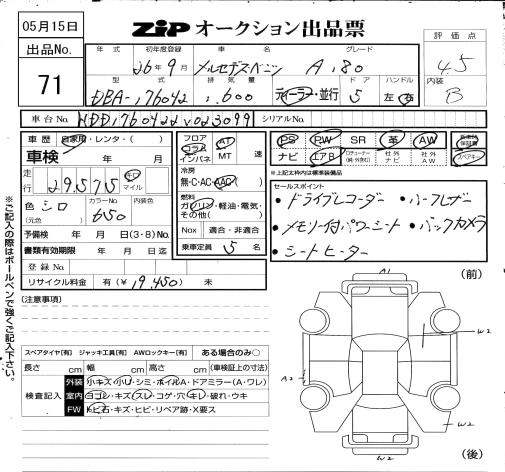 05月15日
ZIP オークション出品票
出品No. 71
年式 初年度登録 車名 グレード
26年9月 メルセデスベンツ A180
評価点 4.5
型式 排気量 ドア ハンドル
DBA-176042 1600 ディーラー・並行 5 左・右
内装 B
車台No. WDD1760422V023099 シリアルNo.
車歴 自家用・レンタ・( )
車検 年 月
走行 29,575 キロ マイル
色 シロ (元色) カラーNo 650 内装色
予備検 年 月 日(3・8)No.
書類有効期限 年 月 日迄
登録No.
リサイクル料金 有(¥19,450) 無
フロア コラム インパネ AT MT 速
冷房 無・C・AC・AAC
燃料 ガソリン・軽油・電気・その他( )
Nox 適合・非適合
乗車定員 5 名
PS PW SR 革 AW
ナビ エアB 社外ナビ 社外AW スペアキー
※上記太枠内は標準装備品
セールスポイント
・ドライブレコーダー ・ハーフレザー
・メモリー付パワーシート ・バックカメラ
・シートヒーター
※ご記入の際はボールペンで強くご記入下さい。
(注意事項)
スペアタイヤ[有] ジャッキ工具[有] AWロックキー[有] ある場合のみ○
長さ cm 幅 cm 高さ cm (車検証上の寸法)
検査記入
外装 小キズ・小凹・シミ・ホイルA・ドアミラー(A・ワレ)
室内 ヨゴレ・キズ(スレ)・コゲ・穴・キレ・破れ・ウキ
FW トビ石・キズ・ヒビ・リペア跡・X要ス
(前)
A1
W2
A2
W2
W2
(後)